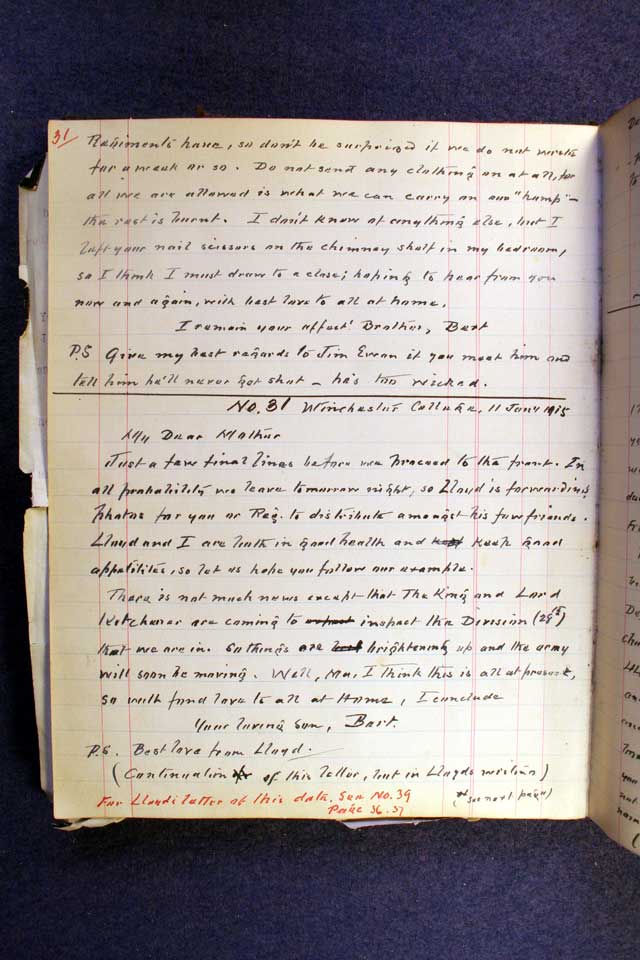 31/
Regiments have, so don't be surprized if we do not write
for a week or so. Do not send any clothing on at all, for
all we are allowed is what we can carry on our "hump" —
the rest is burnt. I don't know of anything else, but I
left your nail scissors on the chimney shelf in my bedroom,
so I think I must draw to a close; hoping to hear from you
now and again, with best love to all at home.
I remain your affect' Brother, Bert
P.S Give my best regards to Jim Evean if you meet him and
tell him he'll never get shot — he's too wicked.
No. 31 Winchester College, 11 Jany 1915
My Dear Mother
Just a few final lines before we proceed to the front. In
all probability we leave tomorrow night, so Lloyd is forwarding
photos for you or Reg. to distribute amongst his few friends.
Lloyd and I are both in good health and keep good
appetites, so let us hope you follow our example.
There is not much news except that The King and Lord
Kitchener are coming to inspect the Division (28th)
that we are in. So things are brightening up and the army
will soon be moving. Well, Ma, I think this is all at present,
so with fond love to all at Home, I conclude
Your loving Son, Bert.
P.S. Best love from Lloyd.
(Continuation of this letter, but in Lloyds writing)
For Lloyds letter of this date, See No. 39 (* see next page")
Page 36.37